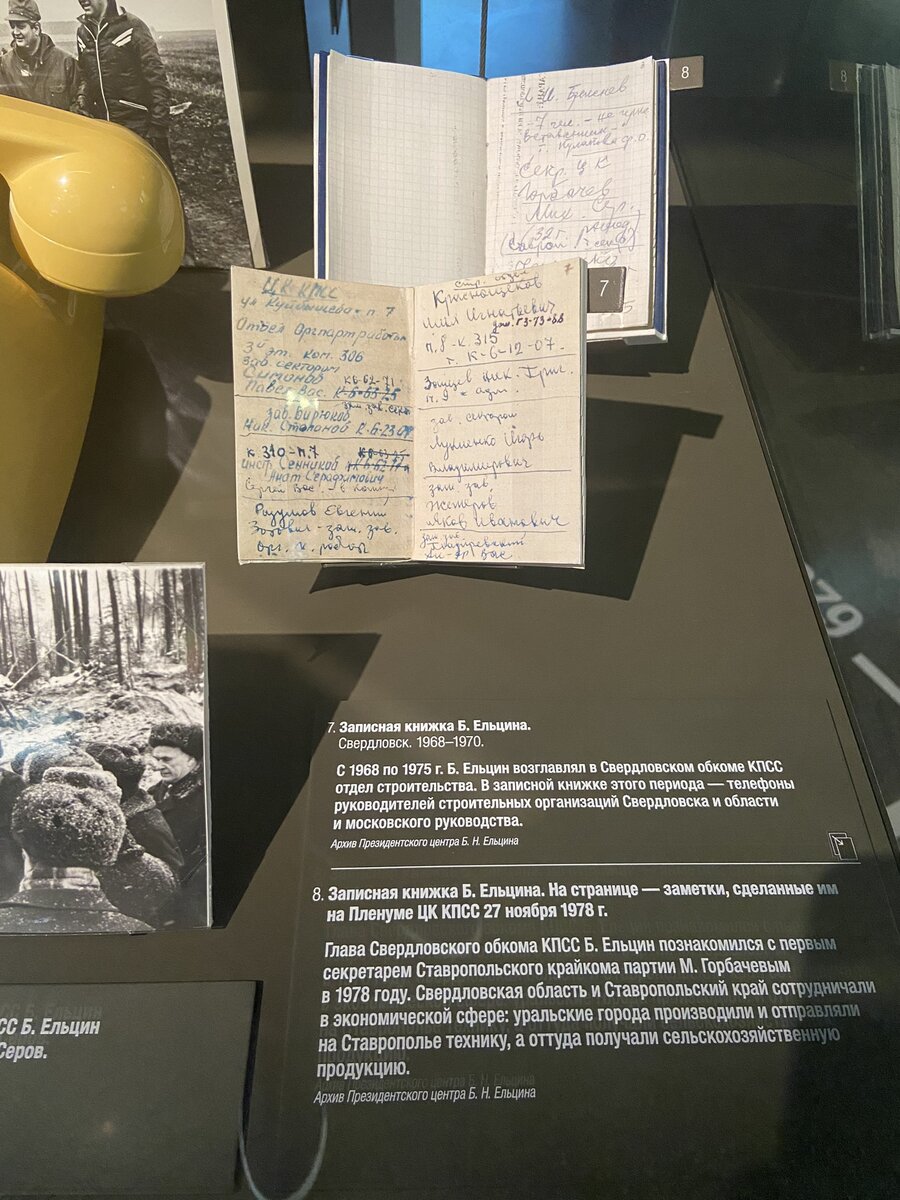 8
8
Л. И. Брежнев
7 чел. - не чер
вставании
Кулакова Ф. О.
Секр. ЦК
Горбачев
Мих. Сер.
32 г.
7
ЦК КПСС
ул Куйбышева п. 7
Отдел Оргпартработы
3й эт. ком. 306
Зав. сектором
Симонов к6-62-71
Павел Вас. К-6-63-25
зам. зав. сект
зав. Бирюков
Ник. Степанов К-6-23-07
к 310-п.7
инст. Сенников
Анат. Серафимович
Сергей Вас.
Разумов Евгений
Зотович - зам. зав.
Орг. п. работ
стр. отдел
7
Краснощеков
Игнатьевич
п. 8 - к. 315
т. К-6-12-07.
Зайцев Ник. Григ.
п. 9
зав. сектором
Лукиенко Игорь
Владимирович
зам. зав.
Жестеров
Яков Иванович
зам. зав.
Вас.
79
7. Записная книжка Б. Ельцина.
Свердловск. 1968–1970.
С 1968 по 1975 г. Б. Ельцин возглавлял в Свердловском обкоме КПСС
отдел строительства. В записной книжке этого периода — телефоны
руководителей строительных организаций Свердловска и области
и московского руководства.
Архив Президентского центра Б. Н. Ельцина
8. Записная книжка Б. Ельцина. На странице — заметки, сделанные им
на Пленуме ЦК КПСС 27 ноября 1978 г.
Глава Свердловского обкома КПСС Б. Ельцин познакомился с первым
секретарем Ставропольского крайкома партии М. Горбачевым
в 1978 году. Свердловская область и Ставропольский край сотрудничали
в экономической сфере: уральские города производили и отправляли
на Ставрополье технику, а оттуда получали сельскохозяйственную
продукцию.
Архив Президентского центра Б. Н. Ельцина
СС Б. Ельцин
Серов.